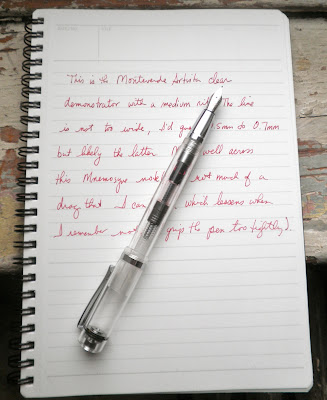 This is the Monteverde Artista clear
demonstrator with a medium The line
is not too wide, I'd 5mm to 0.7mm
but likely the latter. well across
this Mnemosyne not much of a
drag that I can which lessens when
I remember not grip the pen too tightly).